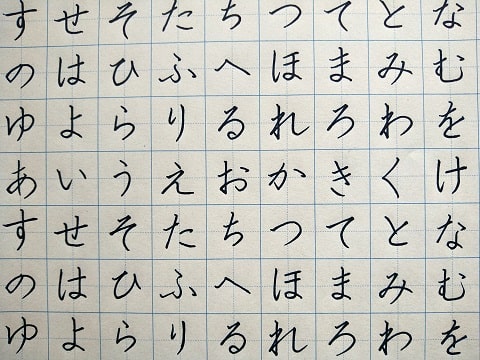 すせそたちつてとな
のはひふへほまみむ
ゆよらりるれろわを
あいうえおかきくけ
すせそたちつてとな
のはひふへほまみむ
ゆよらりるれろわを